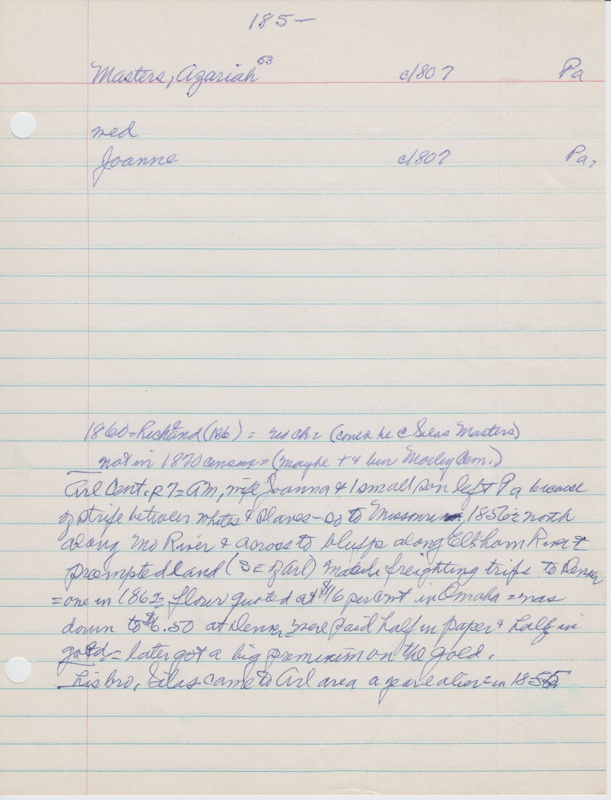 185-
Masters, Azariah 53 c/1807 Pa
med
Joanne c/1807 Pa,
1860=Richland (186) = no ch= (could be c Silas Masters)
not in 1870 census=(maybe + & bur Morley Cem.)
Arl Cent. p 7= AM, wife Joanna & 1 small son left Pa because
of strife between whites & slaves - so to Missouri 1856= north
along Mo River & across to bluffs along Elkhorn River &
preempted land (SE Arl) made freighting trips to Denver
=one in 1862= flour quoted at $16 per cent in Omaha = was
down to $6.50 at Denv, were paid half in paper & half in
gold = later got a big premimim on the gold.
His bro, Silas came to Arl area a year ealier=in 1855